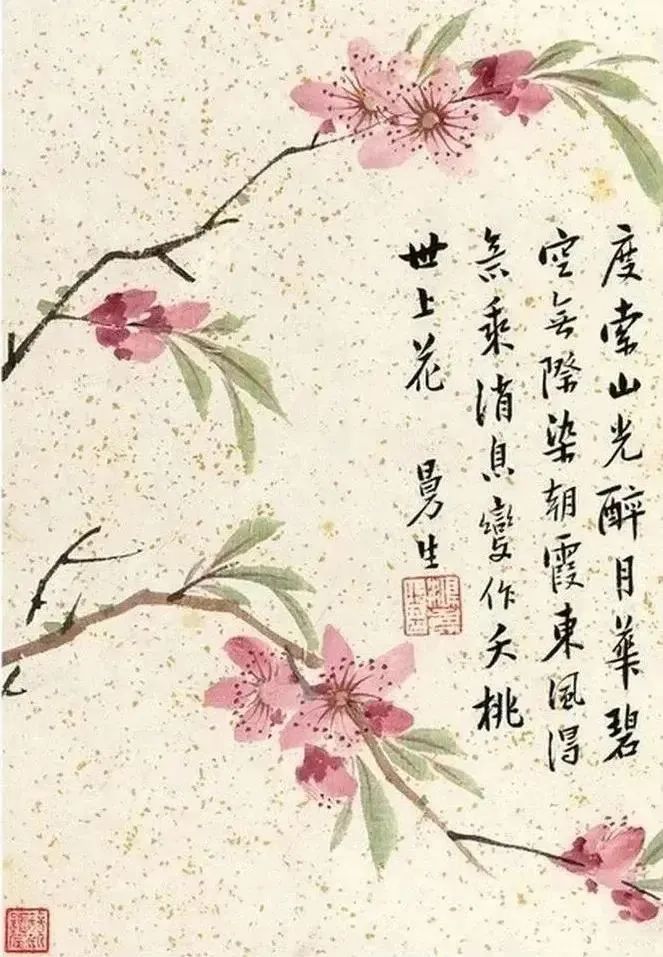 度索山光醉月華碧
空無際染朝霞東風得
意乘消息變作夭桃
世上花
曼生